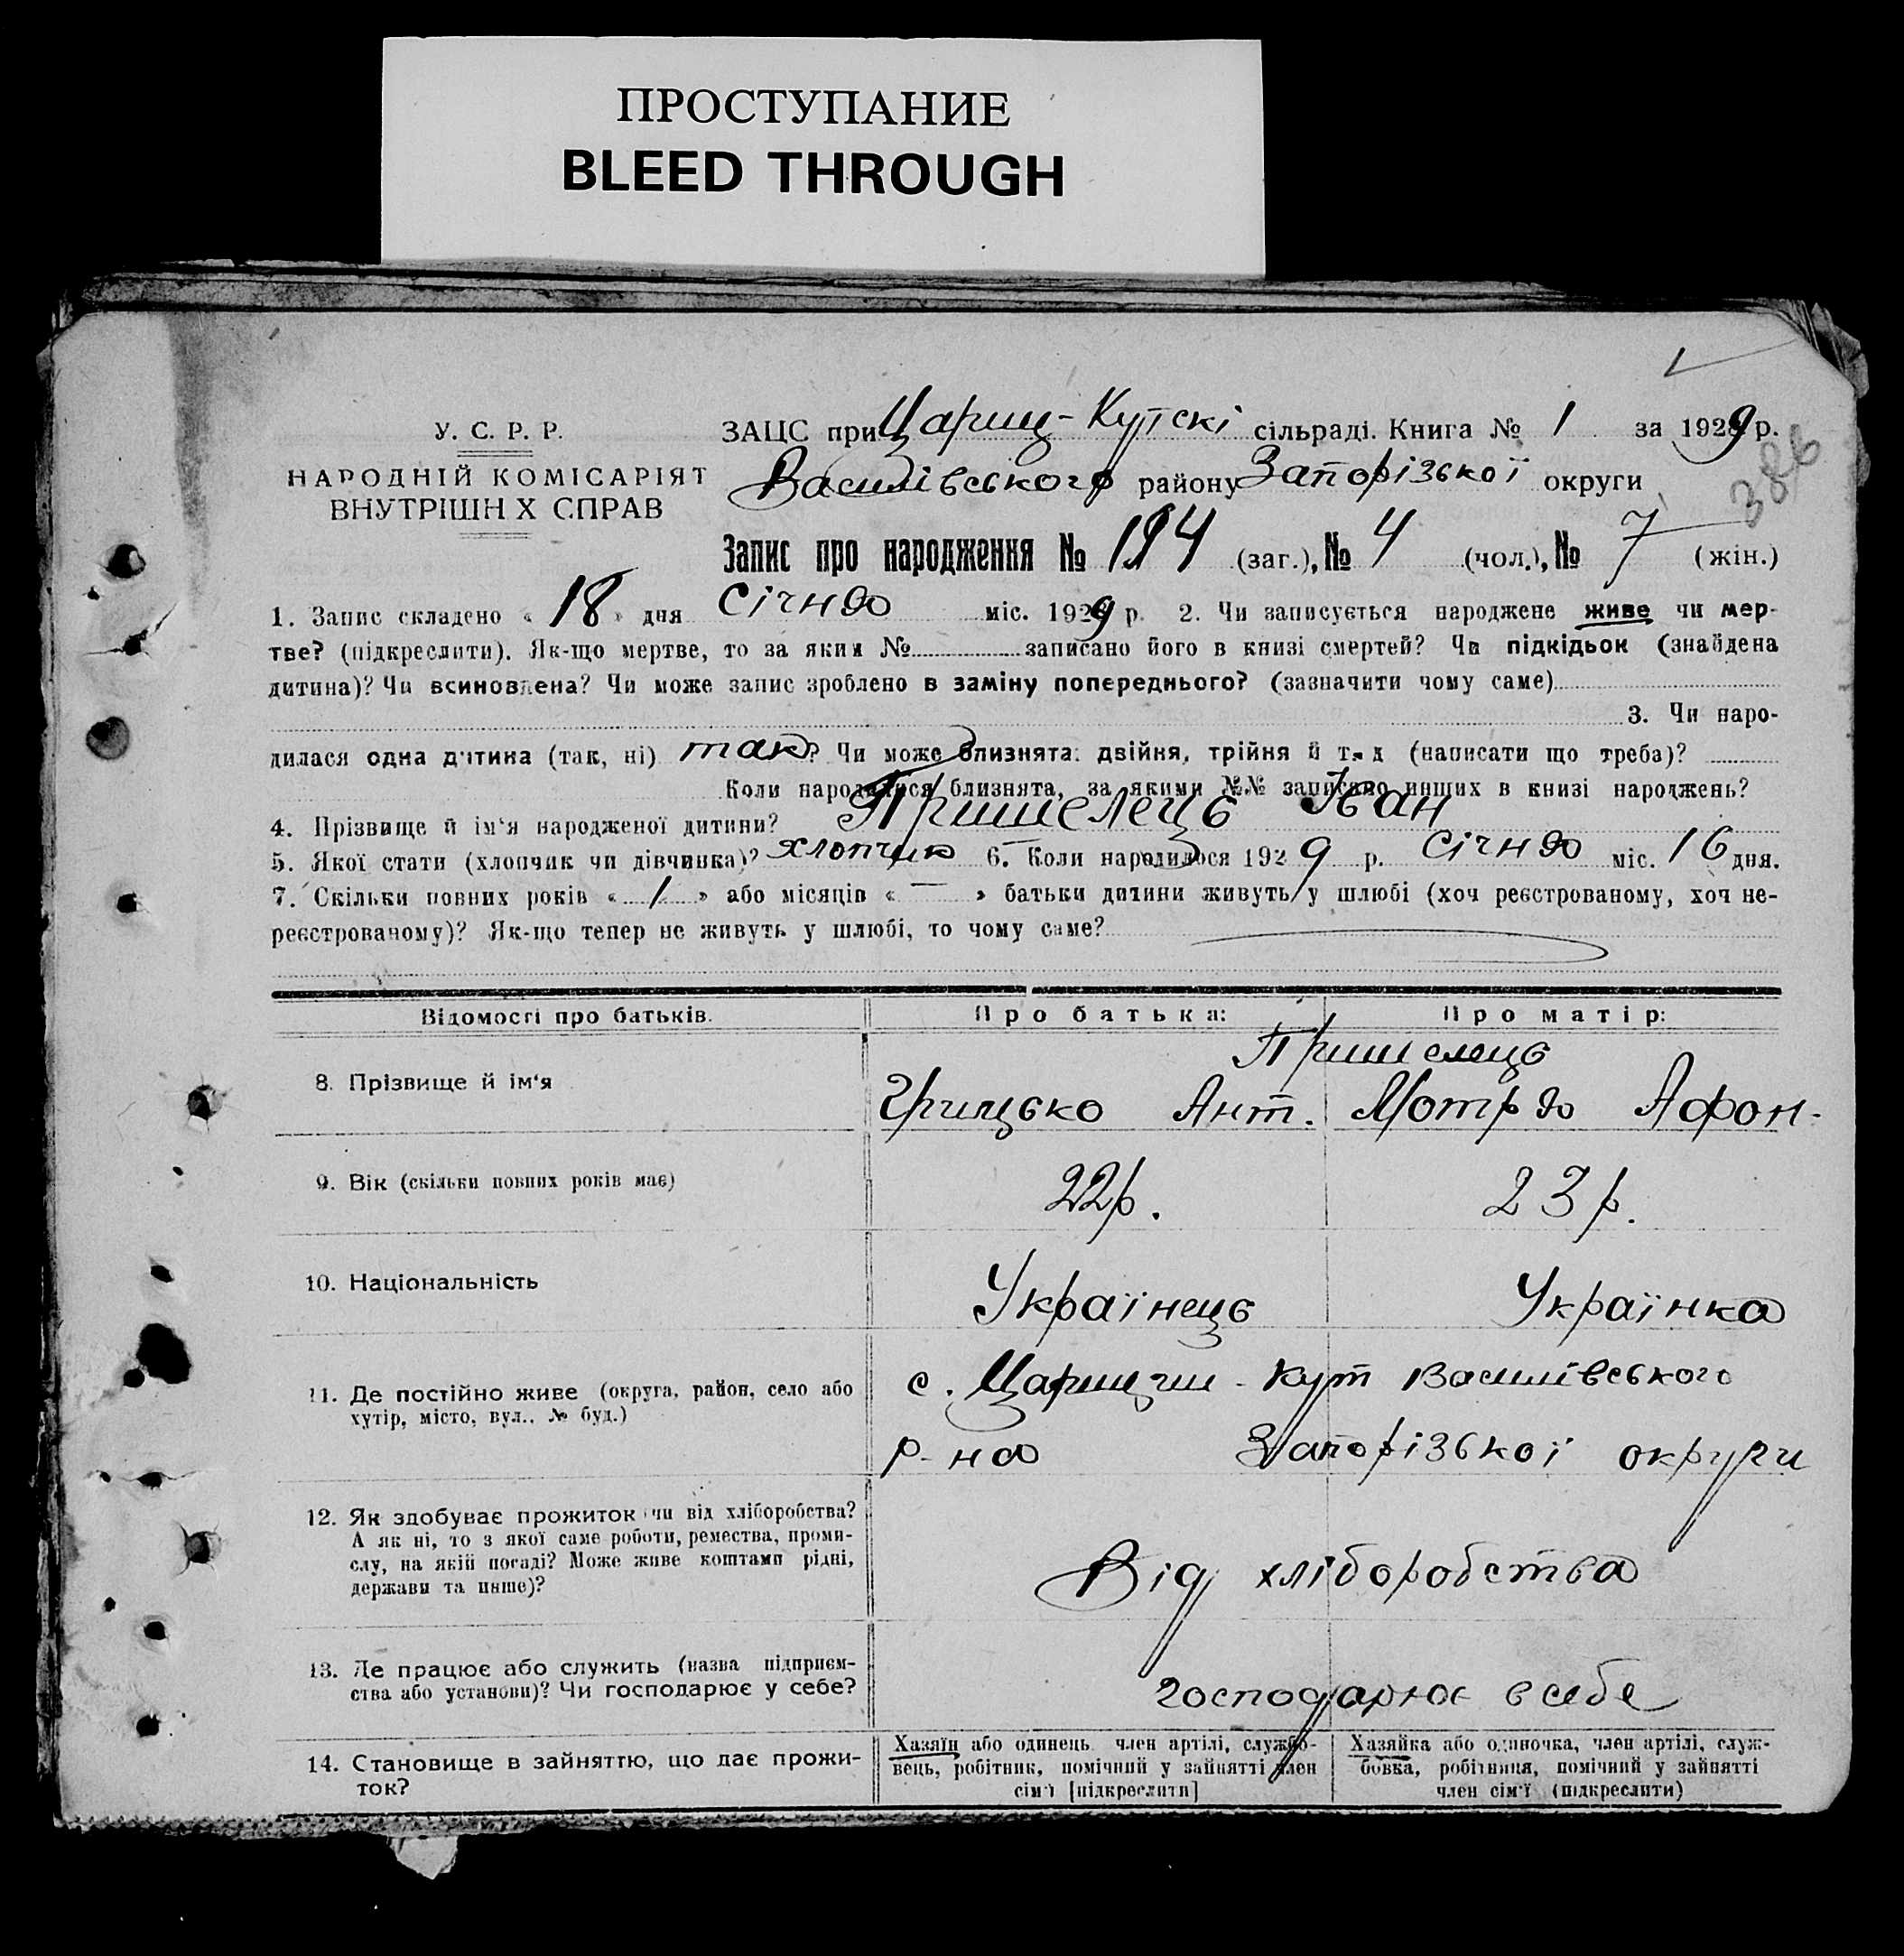 ПРОСТУПАНИЕ
BLEED THROUGH
У. С. Р. Р.
НАРОДНІЙ КОМІСАРІЯТ
ВНУТРІШН Х СПРАВ
ЗАЦС при Цариц-Кутскі сільраді. Книга № 1 за 1929 р.
Василівського району Запорізької округи
386
Запис про народження № 194 (заг.), № 4 (чол.), № 7 (жін.)
1. Запис складено « 18 » дня Січня міс. 1929 р. 2. Чи записується народжене живе чи мер-
тве? (підкреслити). Як-що мертве, то за яким № записано його в книзі смертей? Чи підкідьок (знайдена
дитина)? Чи всиновлена? Чи може запис зроблено в заміну попереднього? (зазначити чому саме)
3. Чи наро-
дилася одна дитина (так, ні) так? Чи може близнята: двійня, трійня й т. д (написати що треба)?
Коли народилися близнята, за якими №№ записано инших в книзі народжень?
4. Прізвище й ім'я народженої дитини? Пришелець Іван
5. Якої стати (хлопчик чи дівчинка)? хлопчик 6. Коли народилося 1929 р. Січня міс. 16 дня.
7. Скільки повних років « 1 » або місяців « — » батьки дитини живуть у шлюбі (хоч реєстрованому, хоч не-
реєстрованому)? Як-що тепер не живуть у шлюбі, то чому саме?
Відомості про батьків. Про батька: Про матір:
Пришелець
8. Прізвище й ім'я Грицько Ант. Мотря Афон.
9. Вік (скільки повних років має) 22 р. 23 р.
10. Національність Українець Українка
11. Де постійно живе (округа, район, село або
хутір, місто, вул., № буд.)
с. Царицин-Кут Василівського
р-на Запорізької округи
12. Як здобуває прожиток чи від хліборобства?
А як ні, то з якої саме роботи, ремества, проми-
слу, на якій посаді? Може живе коштами рідні,
держави та инше)?
Від хліборобства
13. Де працює або служить (назва підприєм-
ства або установи)? Чи господарює у себе?
господарює в себе
14. Становище в зайняттю, що дає прожи-
ток?
Хазяїн або одинець член артілі, службо-
вець, робітник, помічний у зайнятті член
сім'ї [підкреслити]
Хазяйка або одиночка, член артілі, служ-
бовка, робітниця, помічний у зайнятті
член сім'ї (підкреслити)